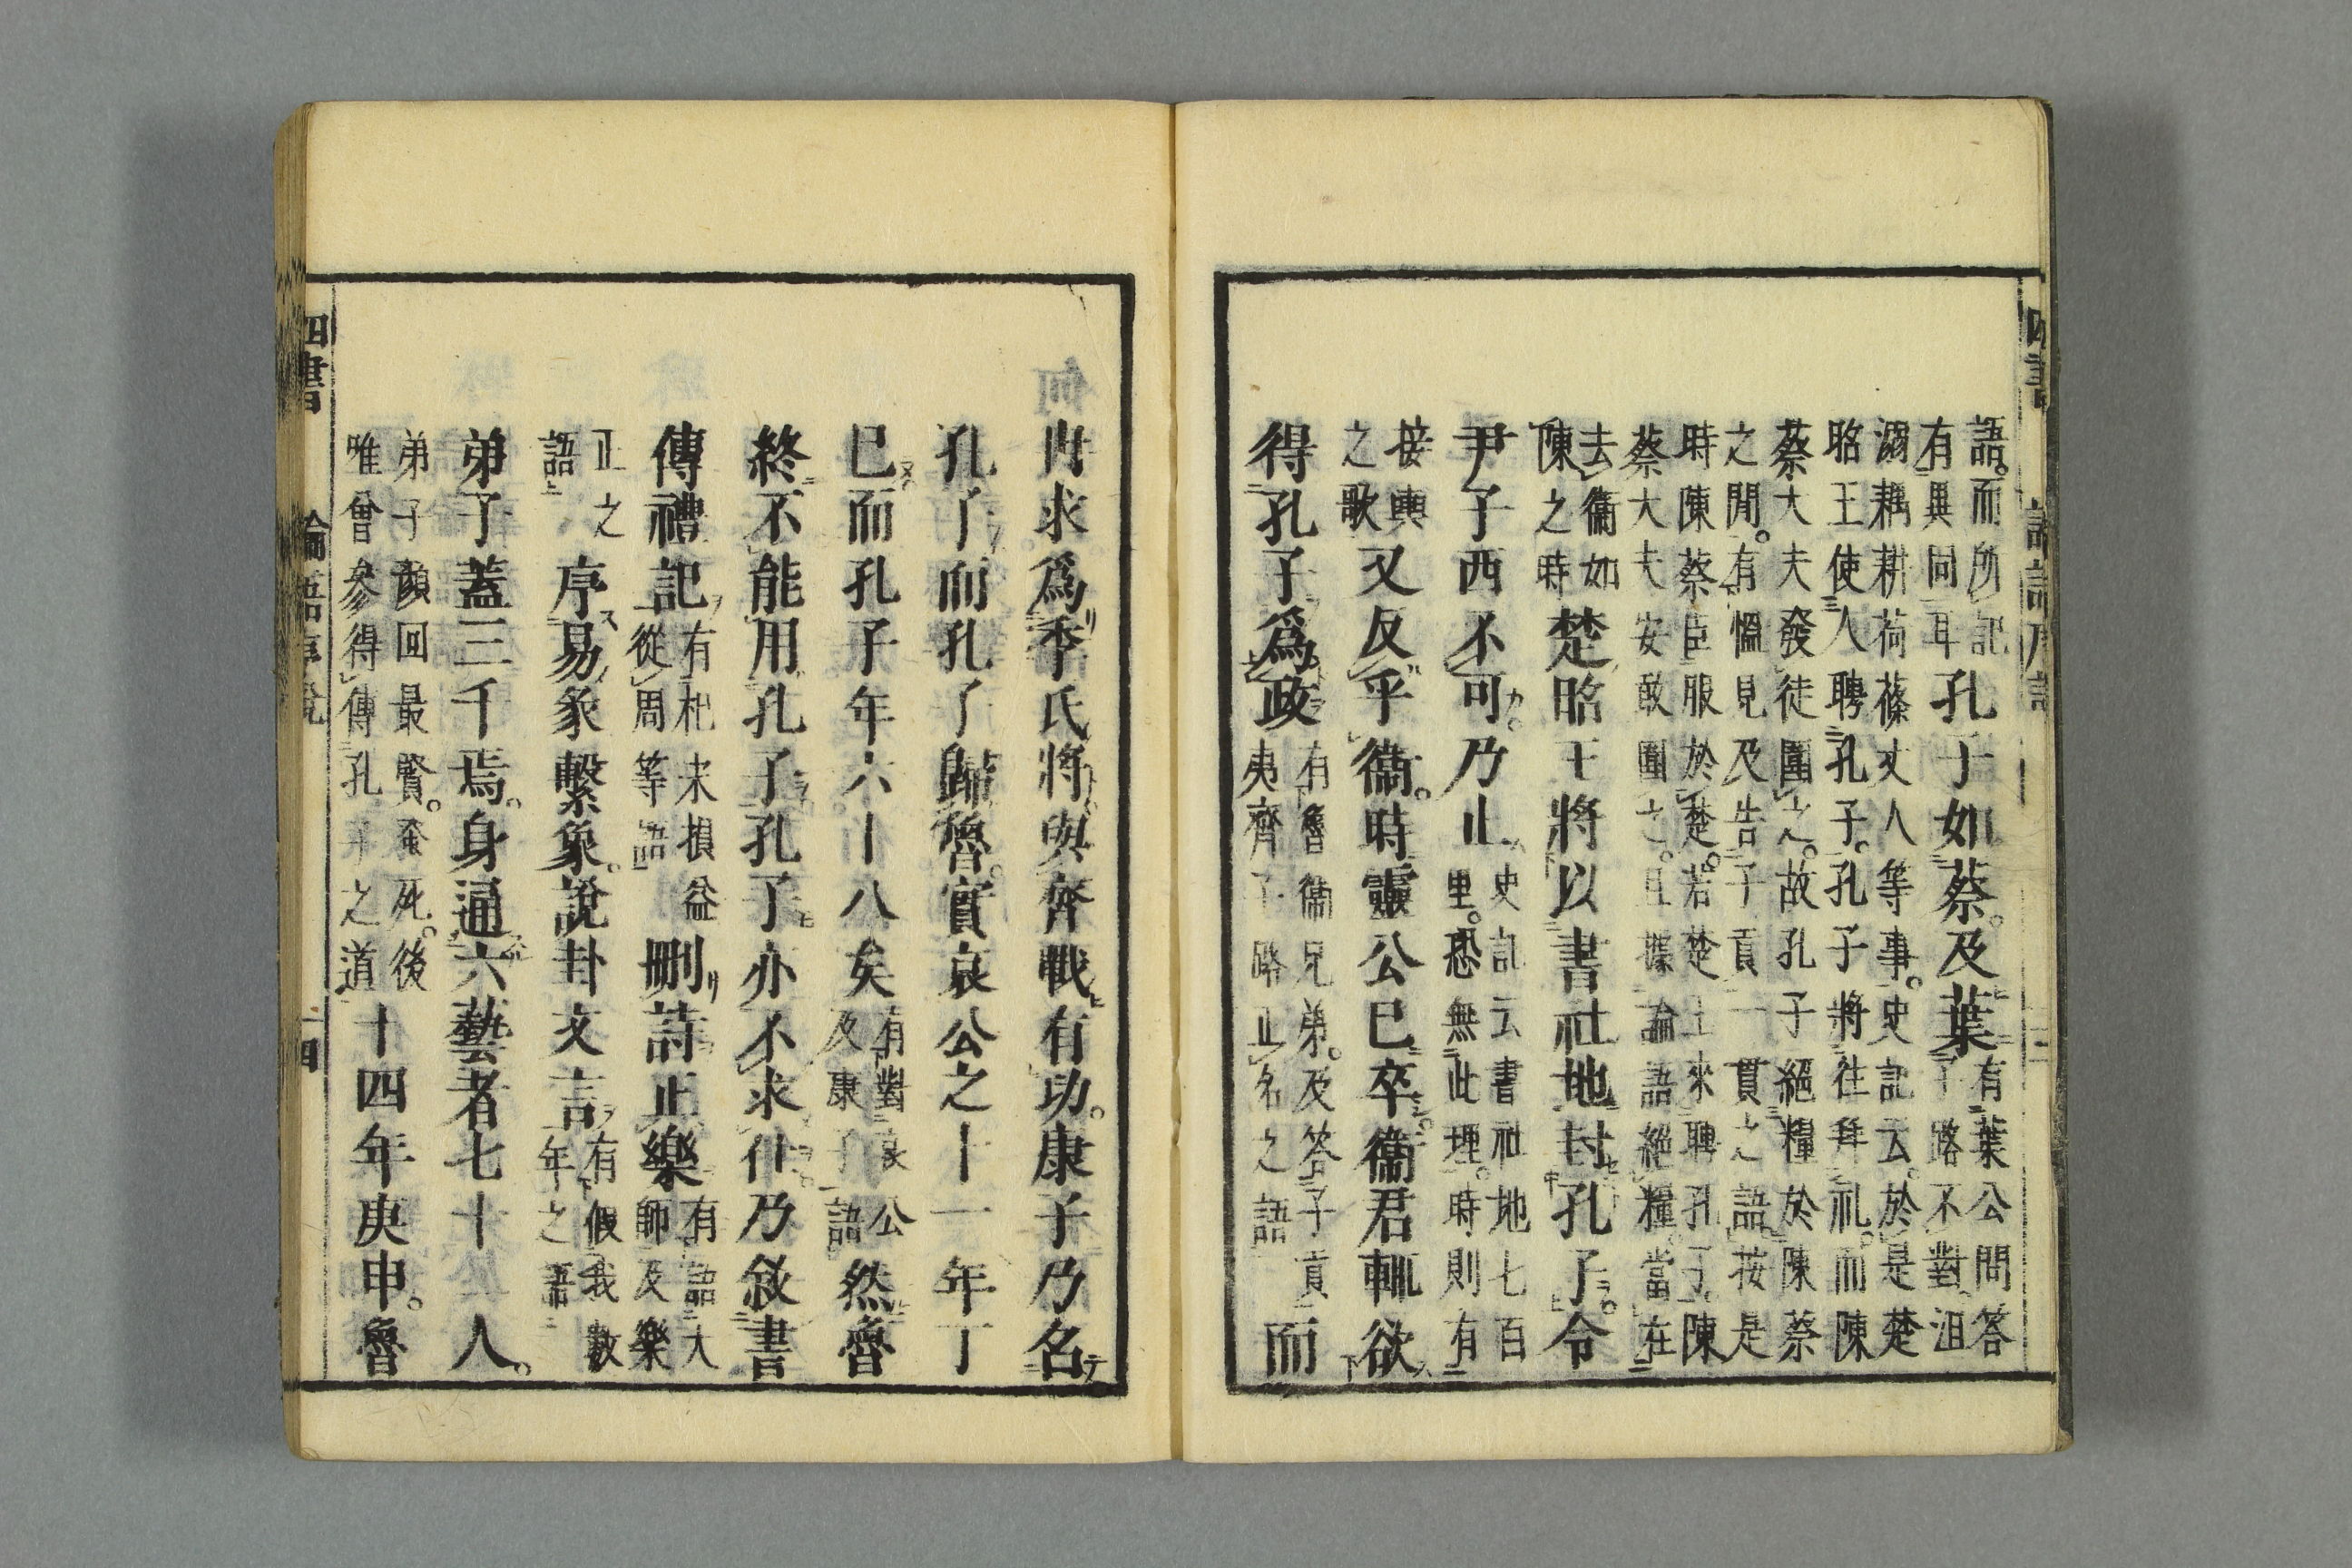 語。而所記
有異同耳
孔子如蔡。及葉
有葉公問答
子路不對。沮
溺耦耕荷蓧丈人等事。史記云。於是楚
昭王使人聘孔子。孔子將往拜礼。而陳
蔡大夫發徒圍之。故孔子絕糧於陳蔡
之間。有慍見及告子貢一貫之語。按是
時陳蔡臣服於楚。若楚王來聘孔子。陳
蔡大夫安敢圍之。且據論語絕糧。當在
去衞如
陳之時
楚昭王將以書社地封孔子。令
尹子西不可。乃止
史記云書社地七百
里。恐無此理。時則有
接輿
之歌
又反乎衞。時靈公已卒。衞君輒欲
得孔子爲政
有魯衞兄弟。及答子貢
夷齊子路正名之語
而
冉求爲季氏將。與齊戰有功。康子乃召
孔子而孔子歸魯。實哀公之十一年丁
巳而孔子年六十八矣
有對哀公
及康子語。
然魯
終不能用孔子孔子亦不求仕。乃敘書
傳禮記
有杞宋損益
從周等語
刪詩正樂
有語大
師及樂
正之
語
序易彖繫象。說卦文言
有假我數
年之語
弟子蓋三千焉。身通六藝者七十人。
弟子顏回最賢。蚤死。後
唯曾參得傳孔子之道
十四年庚申。魯
四書 論語序說 十四